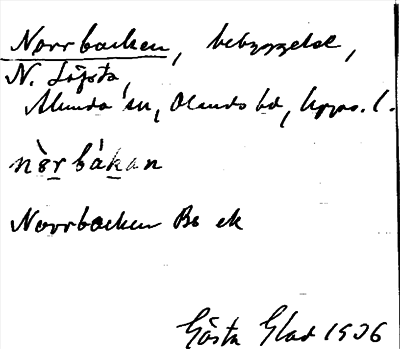 Norrbacken, bebyggelse,
N. Löpsta,
Alunda sn, Olands hd, Upps. l.
nòrbákan
Norrbacken Bs ek
Gösta Glad 1936